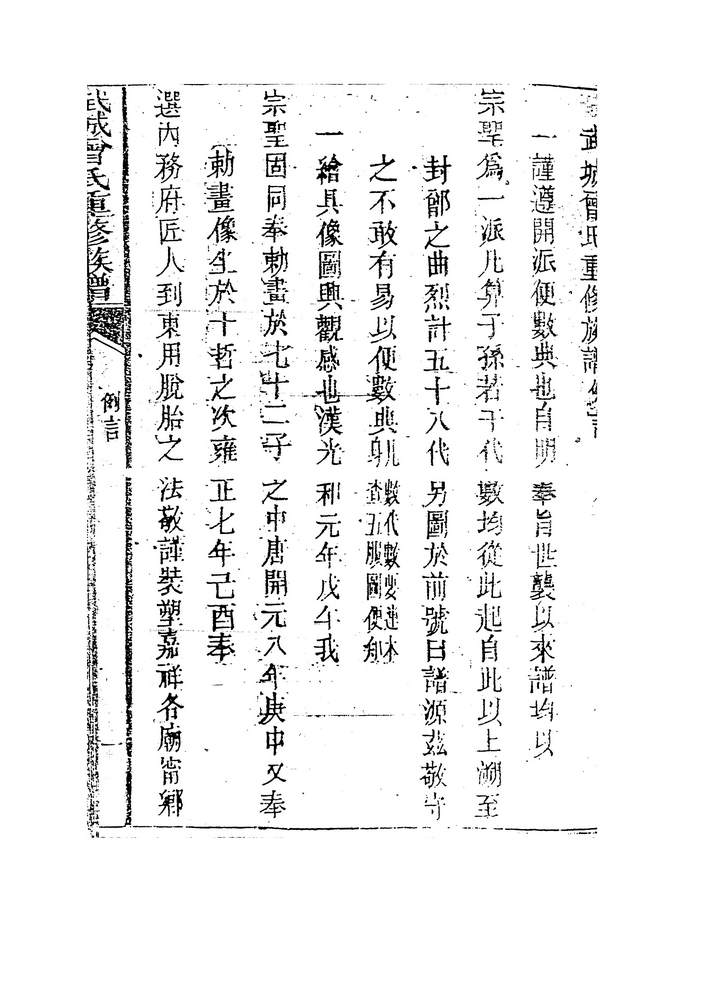 武城曾氏重修族譜例言
一謹遵開派便數典也自明奉旨世襲以來譜均以
宗聖爲一派凡算子孫若干代數均從此起自此以上溯至
封鄫之曲烈計五十八代另圖於前號曰譜源茲敬守
之不敢有易以便數典
數代數要連本
查五服圖便知
一繪具像圖興觀感也漢光和元年戊午我
宗聖固同奉勅畫於七十二子之中唐開元八年庚申又奉
勅畫像坐於十哲之次雍正七年己酉奉
選內務府匠人到東用脫胎之法敬謹裝塑嘉祥各廟甯鄉
武城曾氏重修族譜
例言
一